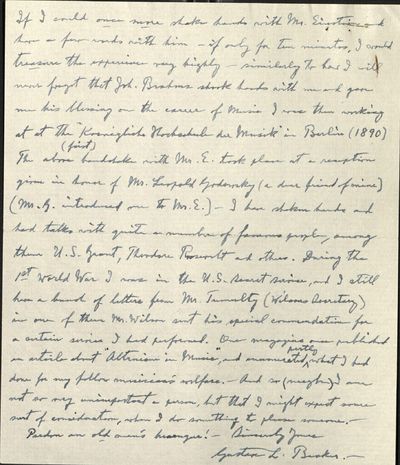 If I could once more shake hands with Mr. Einstein and
have a few words with him — if only for ten minutes, I would
treasure the experience very highly — similarly to how I will
never forget that Joh. Brahms shook hands with me and gave
me his blessing on the career of Music I was then working
at at the Koenigliche Hochschule der Musik in Berlin (1890)
(first)
The above handshake with Mr. E. took place at a reception
given in honor of Mr. Leopold Godowsky (a dear friend of mine)
(Mr. G. introduced me to Mr. E.) — I have shaken hands and
had talks with quite a number of famous people, among
them U.S. Grant, Theodore Roosevelt and others. During the
1st World War I was in the U.S. secret service, and I still
have a bunch of letters from Mr. Tumulty (Wilsons Secretary)
in one of them Mr. Wilson sent his special commendation for
a certain service I had performed. One magazine once published
partly
an article about "Altruism in Music, and enumerated, what I had
done for my fellow musicians's welfare. — And so (maybe) I am
not so very unimportant a person, but that I might expect some
sort of consideration, when I do something to please someone. —
Pardon an old man's harangue! — Sincerely Yours
Gustav L. Becker. —